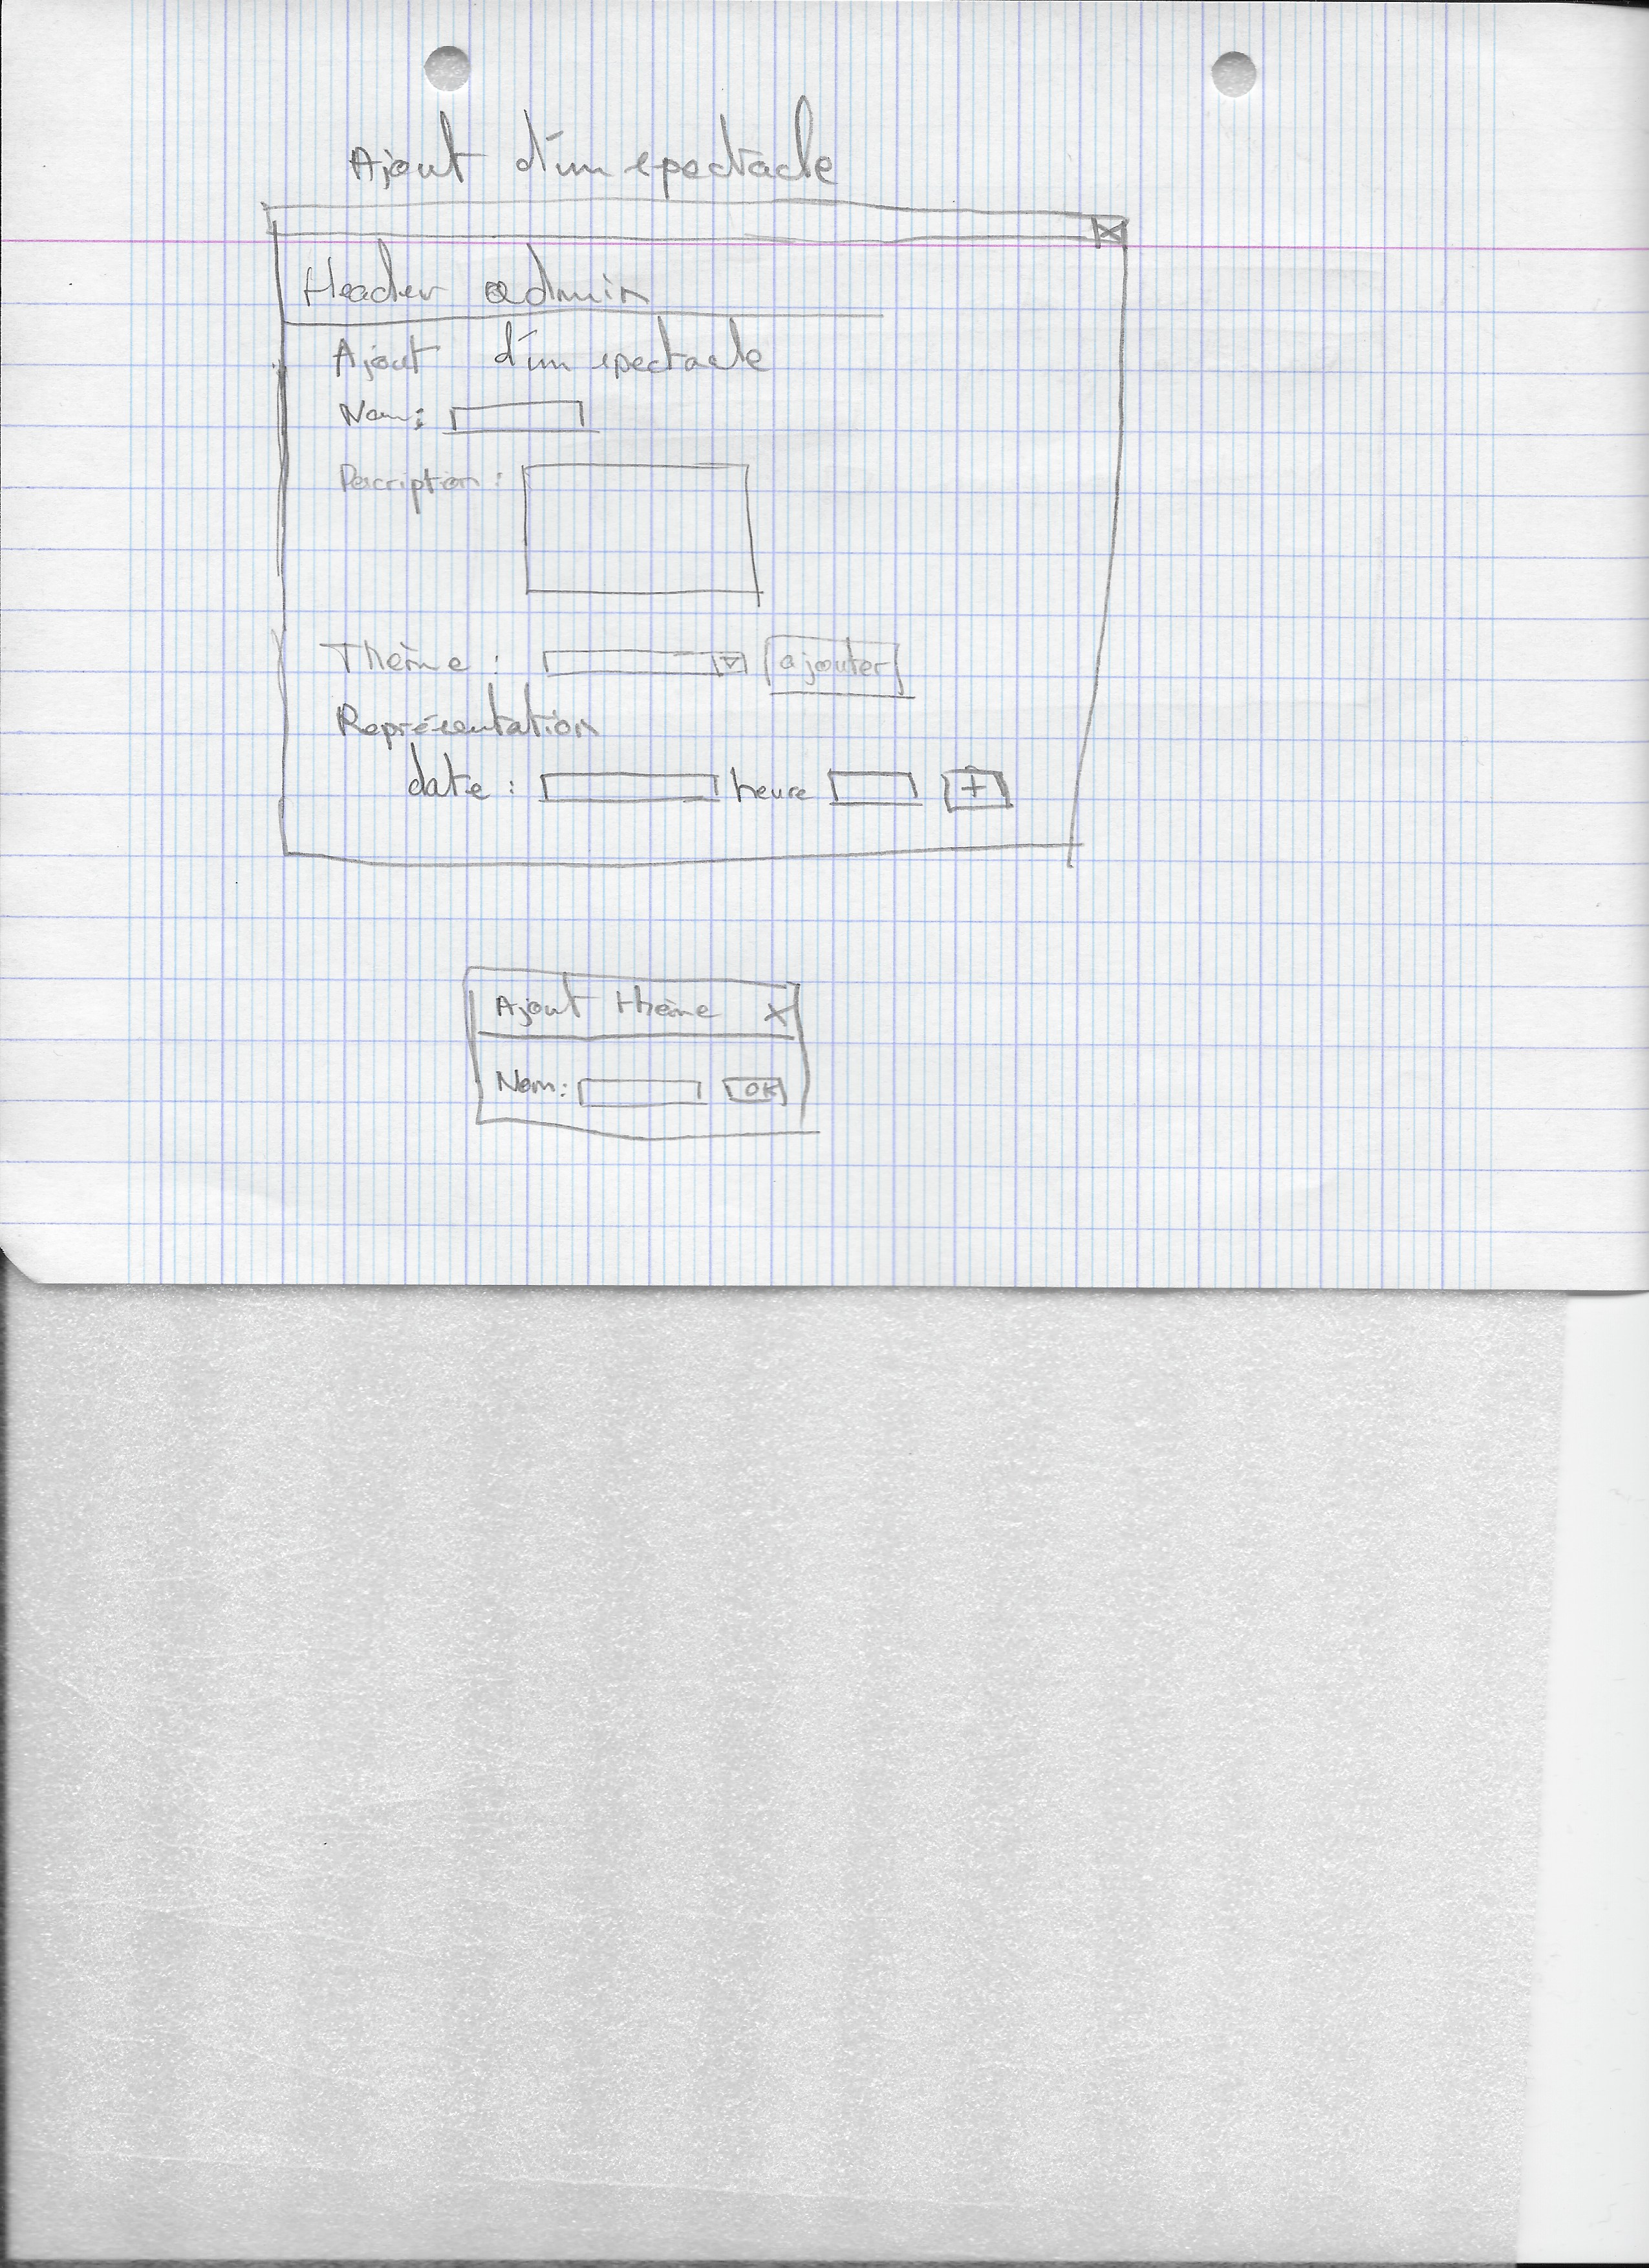 Ajout d'un spectacle
Header admin
Ajout d'un spectacle
Nom:
Description :
Thème : ajouter
Représentation
date : heure +
Ajout thème X
Nom: OK